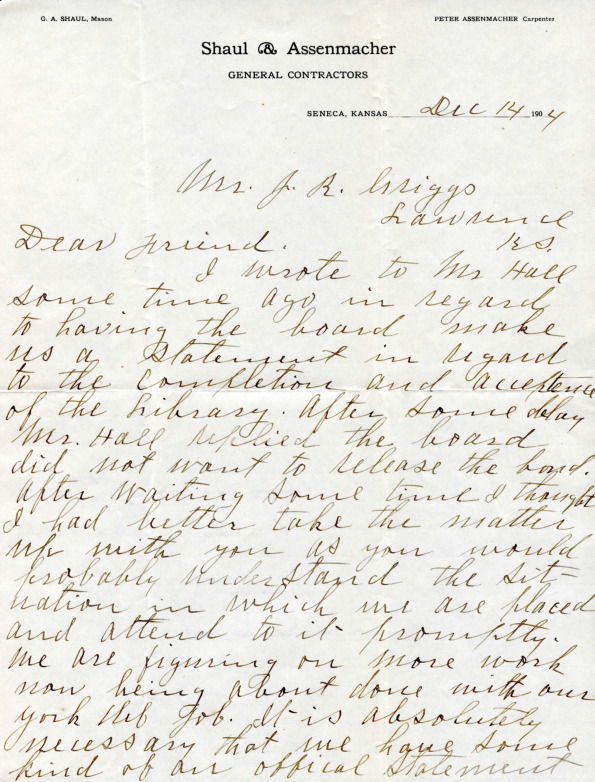 G. A. SHAUL, Mason
PETER ASSENMACHER Carpenter
Shaul & Assenmacher
GENERAL CONTRACTORS
SENECA, KANSAS Dec 14 1904
Mr. J. R. Griggs
Lawrence
Ks.
Dear friend.
I wrote to Mr Hall
some time ago in regard
to having the board make
us a statement in regard
to the completion and acceptence
of the Library. After some delay
Mr. Hall replied the board
did not want to release the bond.
After waiting some time I thought
I had better take the matter
up with you as you would
probably understand the sit-
uation in which we are placed
and attend to it promptly.
We are figuring on more work
now being about done with our
york Neb Job. It is absolutely
necessary that we have some
kind of an offical statement